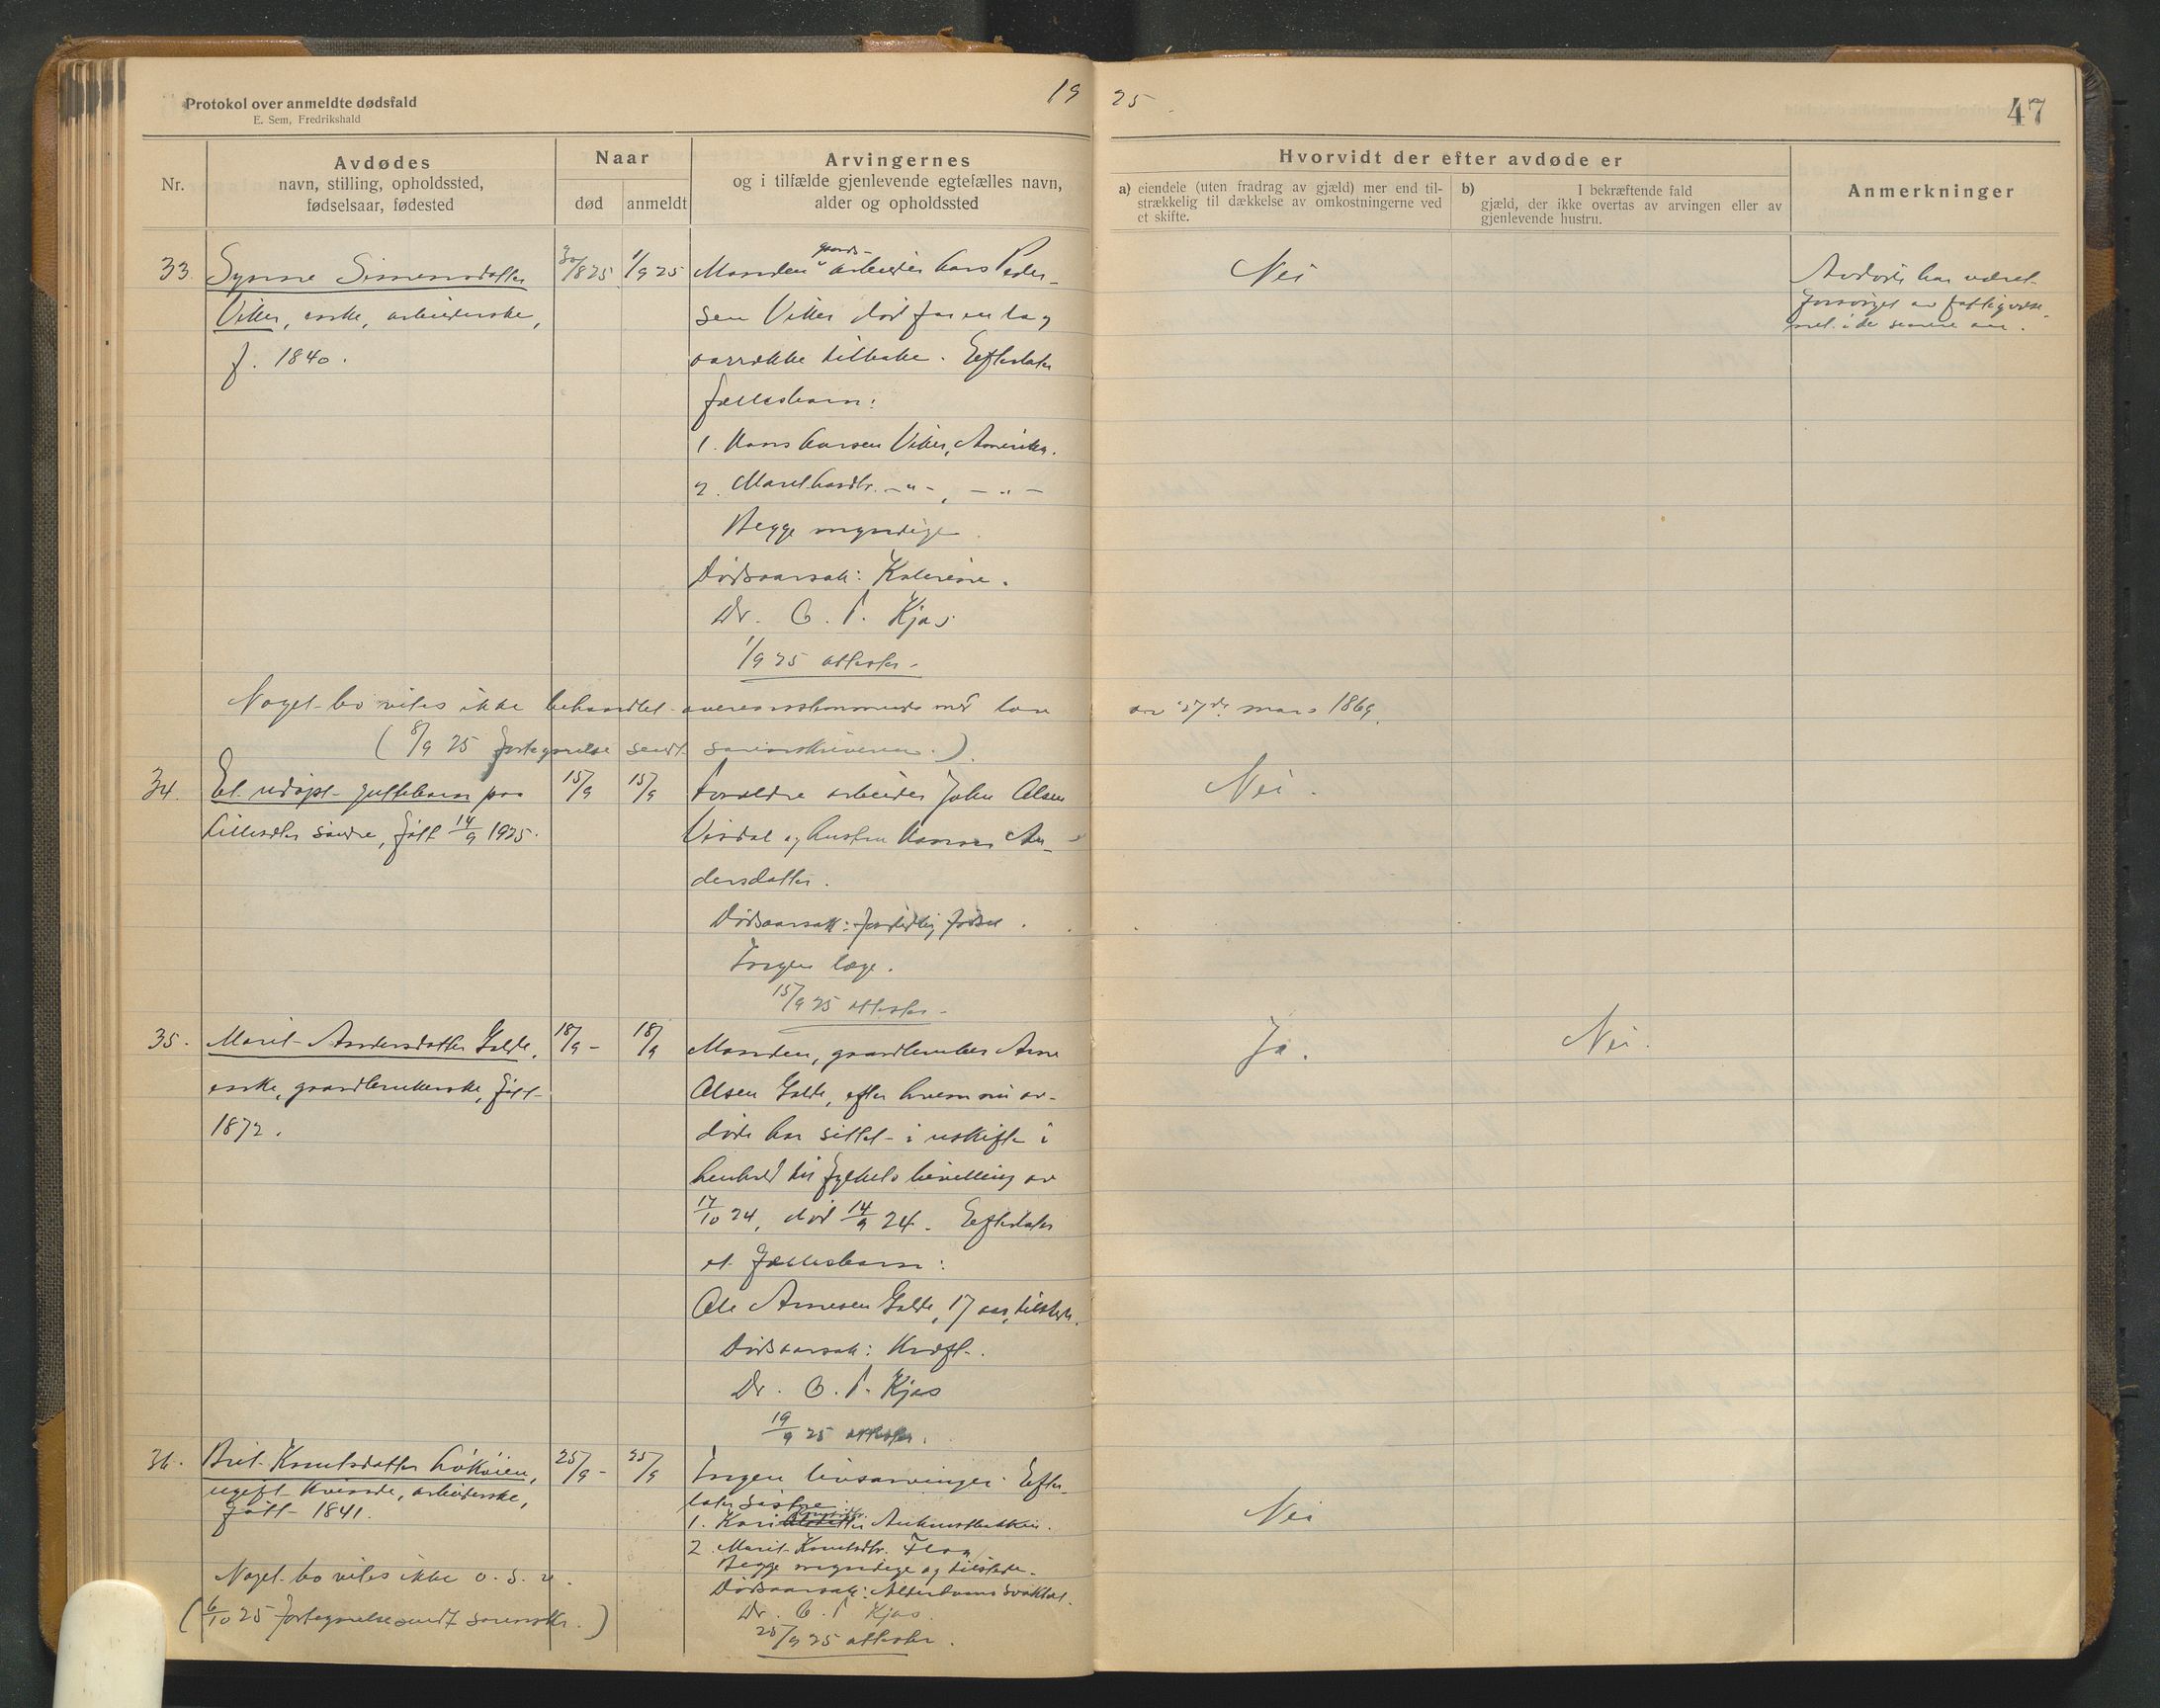 Protokol over anmeldte dødsfald
E. Sem, Fredrikshald
19 25
47
Nr.
Avdødes
navn, stilling, opholdssted,
fødselsaar, fødested
Naar
død
anmeldt
Arvingernes
og i tilfælde gjenlevende egtefælles navn,
alder og opholdssted
Hvorvidt der efter avdøde er
a) eiendele (uten fradrag av gjæld) mer end til-
strækkelig til dækkelse av omkostningerne ved
et skifte.
b) I bekræftende fald
gjæld, der ikke overtas av arvingen eller av
gjenlevende hustru.
Anmerkninger
33. Synne Simensdatter
Viker, enke, arbeiderske,
f. 1840.
30/8 25
1/9 25
Manden gaards-
arbeider Lars Peder-
sen Viker død for en lang
aarrække tilbake. Efterlater
fællesbarn:
1. Hans Larsen Viker, Amerika.
2. Marit Larsdtr. -"-, -"-
Begge myndige.
Dødsaarsak:
Dr. O. T. Kjos
1/9 25 attester
Nei
Avdøde har været
forsørget av fattigvæse-
net i de senere aar.
Noget bo vites ikke behandlet overensstemmende med lov
av 27de mars 1869.
(8/9 25 fortegnelse sendt sorenskriveren.).
34. Et udøpt guttebarn paa
søndre, født 14/9 1925.
15/9
15/9
Forældre arbeider John Olsen
og hustru An-
dersdatter.
Dødsaarsak: fortidlig fødsel.
Ingen læge.
15/9 25 attester
Nei.
35. Marit Andersdatter Golde,
enke, gaardbrukerske, født
1872.
18/9 -
18/9
Manden, gaardbruker Arne
Olsen Golde, efter hvem nu av-
døde har sittet i uskifte i
henhold til fylkets bevilling av
17/10 24, død 14/9 24. Efterlater
et fællesbarn:
Ole Arnesen Golde, 17 aar, tilstede.
Dødsaarsak: Kræft.
Dr. O. T. Kjos
19/9 25 attester.
Ja.
Nei.
36. Brit Knutsdatter Løkøien,
ugift kvinde, arbeiderske,
født 1841.
25/9 -
25/9
Ingen livsarvinger. Efter-
later søstre:
1. Kari Knutsdtr.
2. Marit Knutsdtr. Floa
Begge myndige og tilstede.
Dødsaarsak: Alderdomssvakhet.
Dr. O. T. Kjos.
25/9 25 attester.
Nei
Noget bo vites ikke o. s. v.
(6/10 25 fortegnelse sendt sorenskr.)